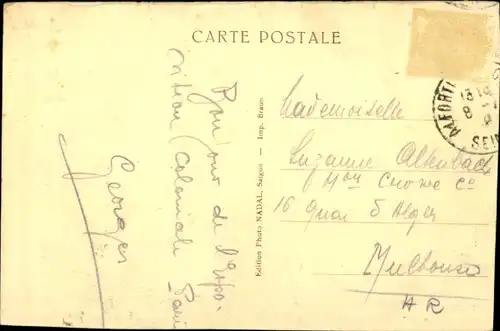 CARTE POSTALE
Bonjour de l'Expo-
sition Coloniale Paris
Georges
Edition Photo NADAL, Saigon — Imp. Braun
Mademoiselle
Suzanne Altenbach
16 Quai d'Alger
Mulhouse
HR
ALFORT
13
8
SEINE